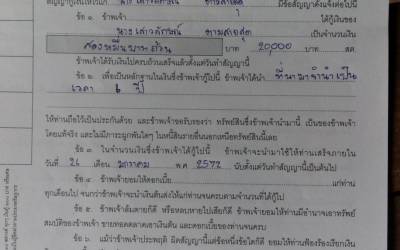 มีข้อสัญญาดังแจ้งต่อไปนี้
ข้อ ๑. ข้าพเจ้า ได้กู้เงินของ
นายเสาวลักษณ์ เป็นจำนวนเงิน
สองหมื่นบาทถ้วน บาท 20,000 บาท สต.
ข้าพเจ้าได้รับเงินไปครบถ้วนเสร็จแล้วตั้งแต่วันทำสัญญานี้
ข้อ ๒. เพื่อเป็นหลักฐานในเงินซึ่งข้าพเจ้ากู้ไปนี้ ข้าพเจ้าได้นำ ที่นามาจำนำเป็น
เวลา ปี
ให้ท่านถือไว้เป็นประกันด้วย และข้าพเจ้าขอรับรองว่า ทรัพย์สินซึ่งข้าพเจ้านำมานี้ เป็นของข้าพเจ้า
โดยแท้จริง และไม่มีภาระผูกพันใดๆ ในหนี้สินรายอื่นนอกเหนือทรัพย์สินนี้เลย
ข้อ ๓. ในจำนวนเงินซึ่งข้าพเจ้าได้กู้ไปนี้ ข้าพเจ้าจะนำมาใช้ให้ท่านเสร็จภายใน
วันที่ 26 เดือน มกราคม พ.ศ. 2572 นับตั้งแต่วันทำสัญญานี้เป็นต้นไป
ข้อ ๔. ข้าพเจ้ายอมให้ดอกเบี้ย แก่ท่าน
ทุกเดือนไป จนกว่าข้าพเจ้าจะนำเงินต้นส่งให้แก่ท่านจนครบตามจำนวนที่ได้กู้ไป
ข้อ ๕. ถ้าข้าพเจ้าล้มตายก็ดี หรือหลบหายไปเสียก็ดี ข้าพเจ้ายอมให้ท่านมีอำนาจเอาทรัพย์
สมบัติของข้าพเจ้า ขายทอดตลาดเอาเงินต้น และดอกเบี้ยของท่านจนครบ
ข้อ ๖. แม้ว่าข้าพเจ้าประพฤติ ผิดสัญญานี้แต่ข้อหนึ่งข้อใดก็ดี ยอมให้ท่านฟ้องร้องเรียกเงิน